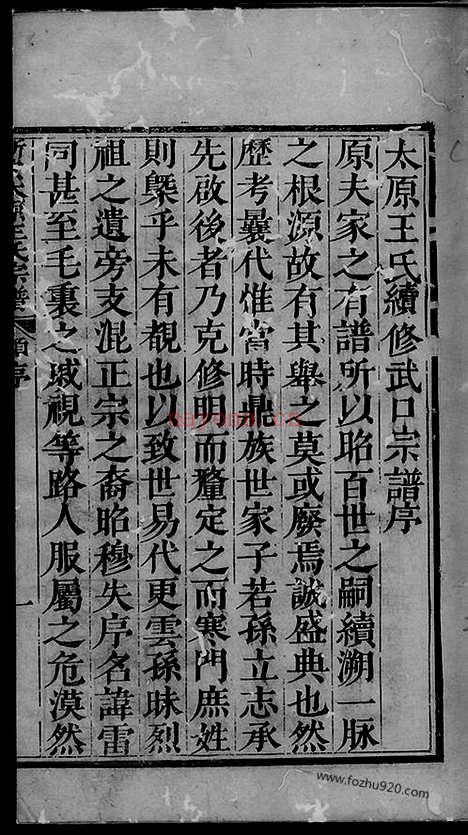 太原王氏續修武口宗譜序
原夫家之有譜所以昭百世之嗣續溯一脉
之根源故有其舉之莫或廢焉誠盛典也然
歷考曩代惟當時鼎族世家子若孫立志承
先啟後者乃克修明而釐定之而寒門庶姓
則槩乎未有覩也以致世易代更雲孫昧烈
祖之遺旁支混正宗之裔昭穆失序名諱雷
同甚至毛裏之戚視等路人服屬之危漠然
太原王氏宗譜 序 一
nayona.cn
www.fozhu920.com